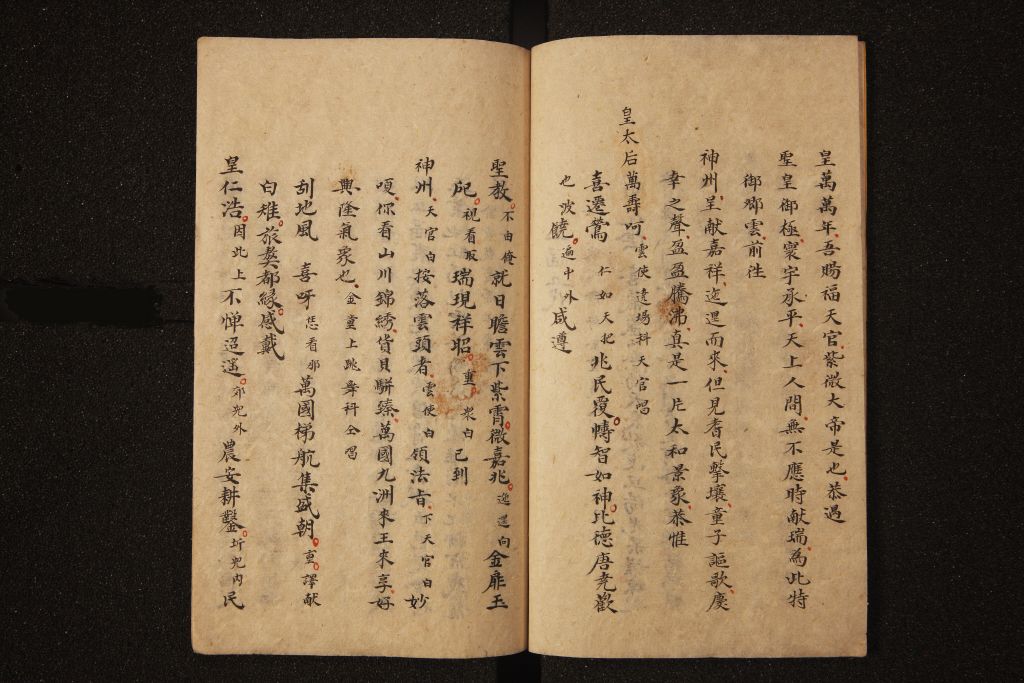 皇萬萬年吾賜福天官紫微大帝是也恭遇
聖皇御極寰宇承平天上人間無不應時献瑞為此特
御鄉雲前往
神州呈献嘉祥迤逞而來但見耆民擊壤童子謳歌慶
幸之聲盈盈騰沸真是一片太和景象恭惟
皇太后萬壽呵雲使遶場科天官唱
喜遷鶯 仁如天圯兆民覆幬智如神比德唐尭歡
也波饒遍中外咸遵
聖教不由俺就日瞻雲下紫霄微嘉兆迤逞向金扉玉
戺祝看取瑞現祥昭重眾白已到
神州天官白按落雲頭者雲使白領法旨下天官白妙
嗄你看山川錦綉貨貝駢臻萬國九洲來王來享好
興隆氣象也金童上跳舞科仝唱
刮地風 喜呀恁看那萬國梯航集盛朝重譯献
白雉旅獒都緣感戴
皇仁浩因此上不憚迢遥那兜外農安耕鑿圻兜內民